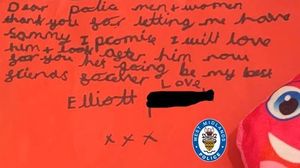 Dear police men + women
thank you for letting me have
Sammy I promise I will love
him + look after him now
for you he's going be my best
friends forever Love
Elliott
x x x
WEST MIDLANDS
POLICE